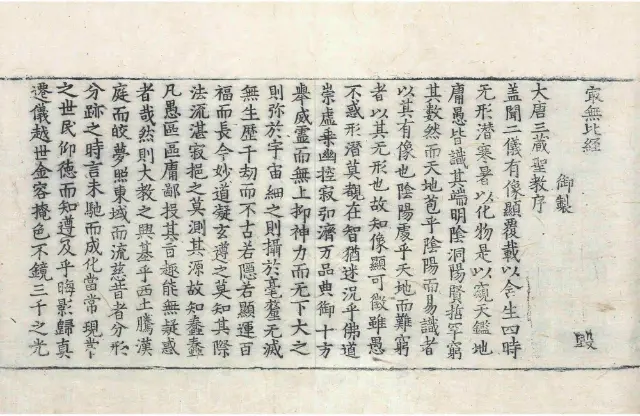 㝡無比經 毀
御製
大唐三藏聖教序
盖聞二儀有像顯覆載以含生四時
无形潜寒暑以化物是以窺天鑑地
庸愚皆識其端明陰洞陽賢哲罕窮
其數然而天地苞乎陰陽而易識者
以其有像也陰陽處乎天地而難窮
者以其无形也故知像顯可徵雖愚
不惑形潜莫覩在智猶迷況乎佛道
崇虛乗幽控寂弘濟万品典御十方
舉威靈而無上抑神力而无下大之
則弥於宇宙細之則攝於毫氂无滅
無生歷千劫而不古若隱若顯運百
福而長今妙道凝玄遵之莫知其際
法流湛寂挹之莫測其源故知蠢蠢
凡愚區區庸鄙投其旨趣能無疑惑
者哉然則大教之興基乎西土騰漢
庭而皎夢照東域而流慈昔者分形
分跡之時言未馳而成化當常現常
之世民仰德而知遵及乎晦影歸真
遷儀越世金容掩色不鏡三千之光